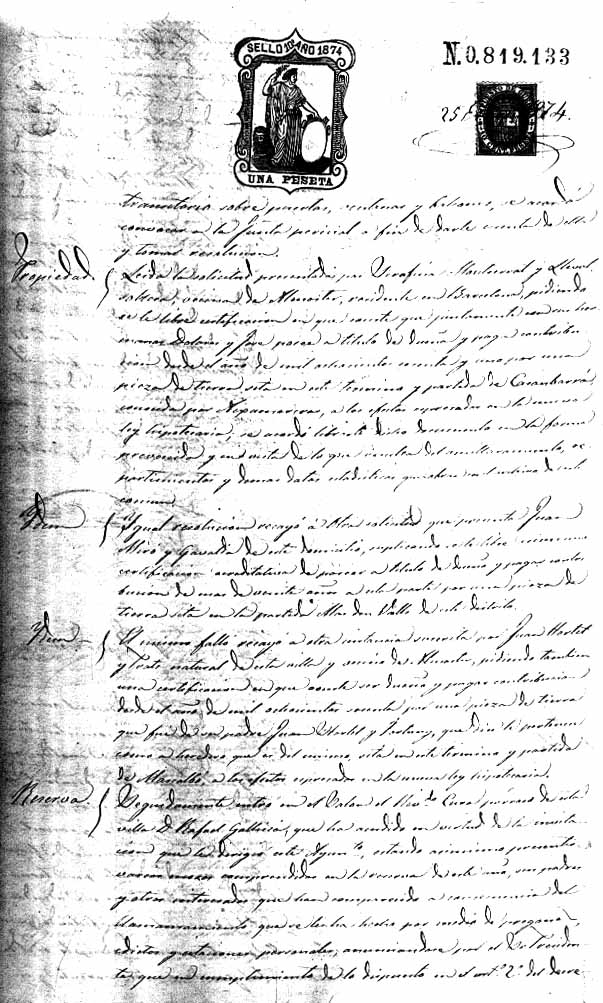 SELLO 10º AÑO 1874
UNA PESETA
N.0.819.133
25
transitorio sobre parcelas, y se acordó
convocar a la Junta pericial a fin de darle cuenta de ella
y tomar resolucion.
Propiedad.
Leida la solicitud presentada por Serafina Montserrat y
soltera, vecina de Almoster, residente en Barcelona, pidiendo
se le libre certificacion en que conste que juntamente con sus her
manos Dolores y José posee a titulo de dueño y paga contribu
cion desde el año de mil ochocientos sesenta y uno por una
pieza de tierra sita en este termino y partida de
conocida por a los efectos espresados en la nueva
ley hipotecaria, se acordó librarle dicho documento en la forma
prevenida y en vista de lo que resulta del amillaramiento, re
partimientos y demas datos estadisticos que obran en el archivo de este
comun.
Idem
Igual resolucion recayó á otra solicitud que presenta Juan
Miró y Gavaldá de este domicilio, suplicando se le libre
certificacion acreditativa de poseer a titulo de dueño y pagar contri
bucion de mas de veinte años a esta parte por una pieza de
tierra sita en la partida Mas den Valls de este distrito.
Idem
El mismo fallo recayó a otra instancia suscrita por Juan
y natural de esta villa y vecino de Almoster, pidiendo tambien
una certificacion en que conste ser dueño y pagar contribucion
desde el año de mil ochocientos sesenta por una pieza de tierra
que fue de su padre Juan y que dice le pertenece
como a heredero que es del mismo, sita en este termino y partida
de a los efectos espresados en la nueva ley hipotecaria.
Reserva.
Seguidamente entró en el Salon el Revdo Cura párroco de esta
villa D. Rafael que ha acudido en virtud de la invita
cion que le dirigió este Ayuntº, estando asimismo presentes
varios mozos comprendidos en la reserva de este año, sus padres
y otros interesados que han comparecido a consecuencia del
llamamiento que se les ha hecho por medio de pregones,
edictos y citaciones personales, anunciandose por el Sr Presiden
te que en cumplimiento de lo dispuesto en el artº 2º del decre